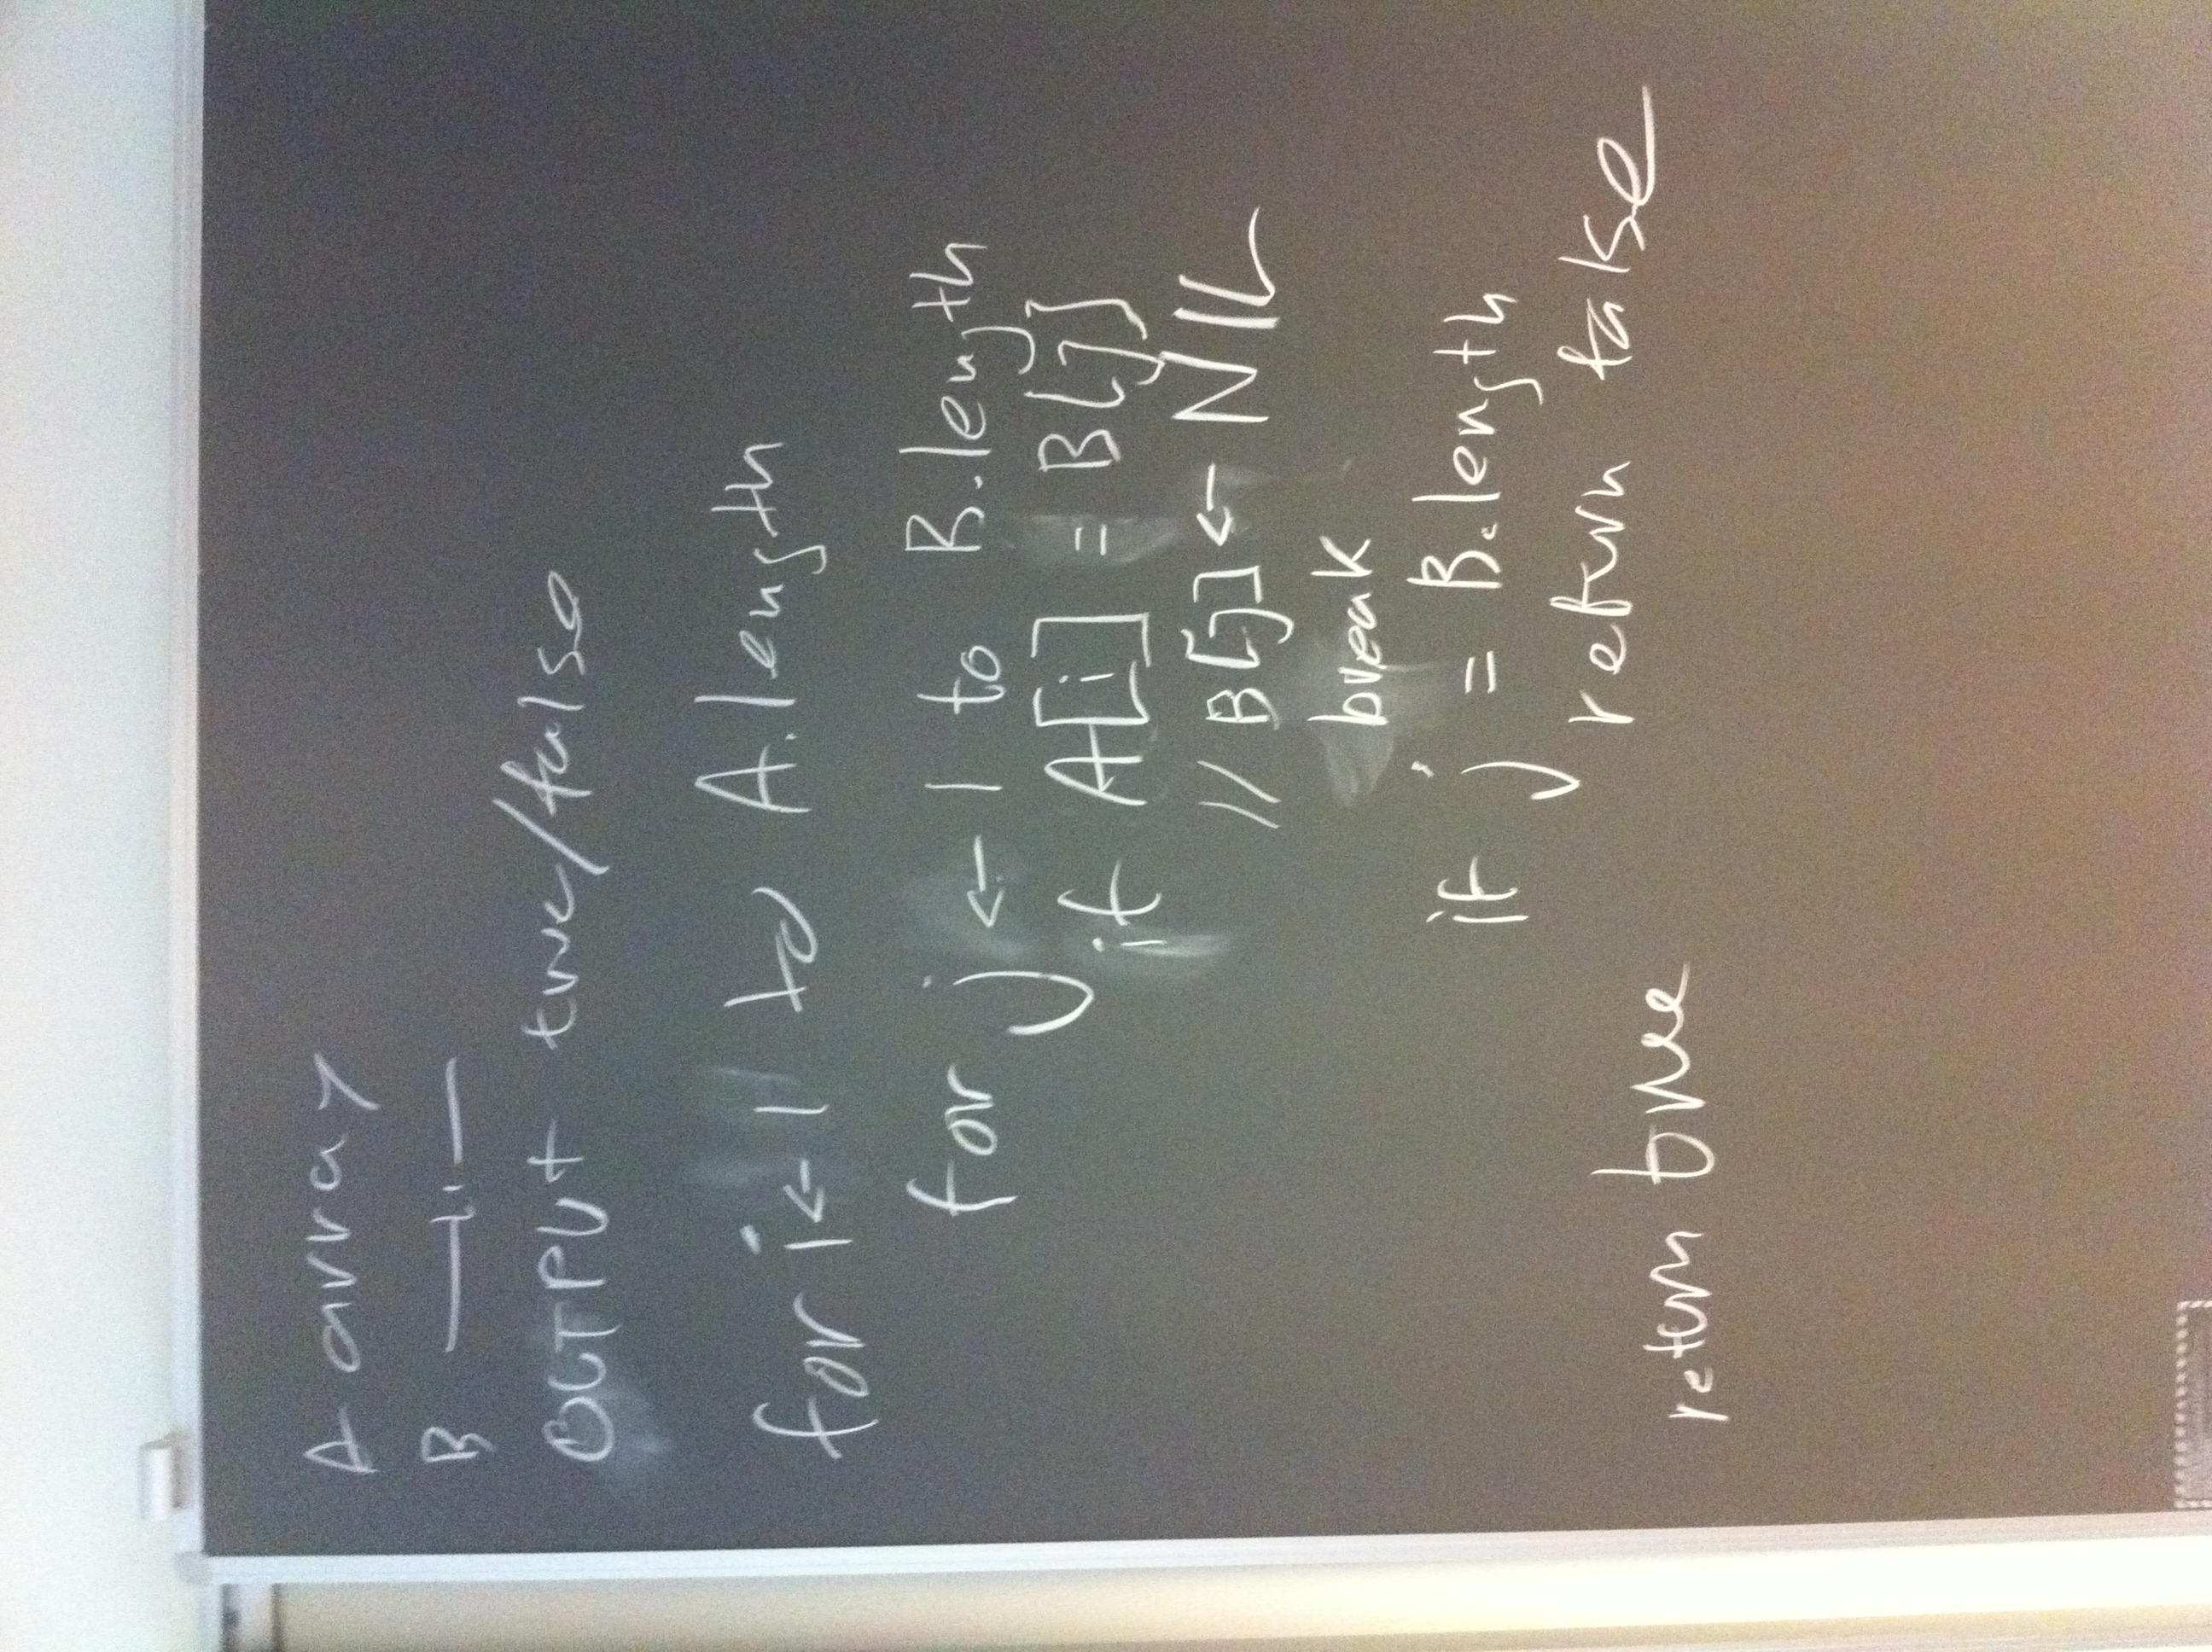 A array
B —"—
OUTPUT true/false
for i ← 1 to A.length
for j ← 1 to B.length
if A[i] = B[j]
// B[j] ← NIL
break
if j = B.length
return false
return true